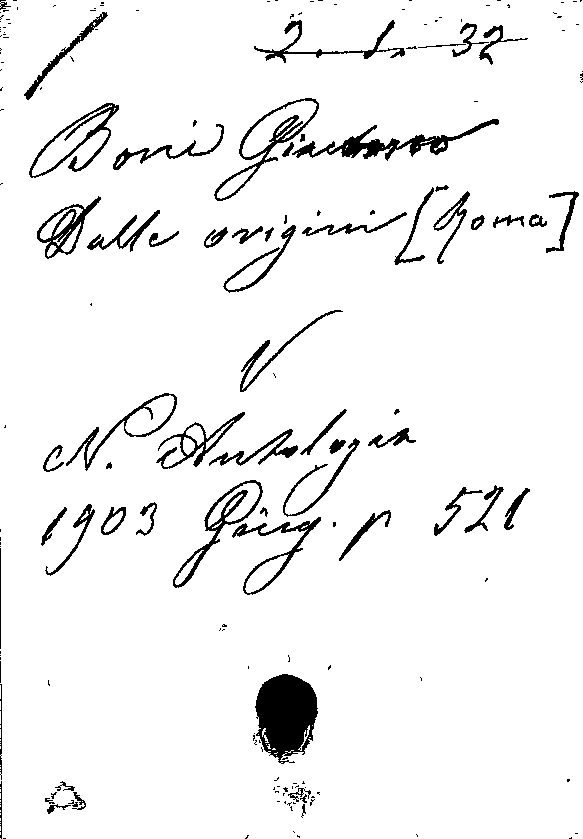 2. 1. 32
Boni Giacomo
Dalle origini [Roma]
V
N. Antologia
1903 Giug. p 521